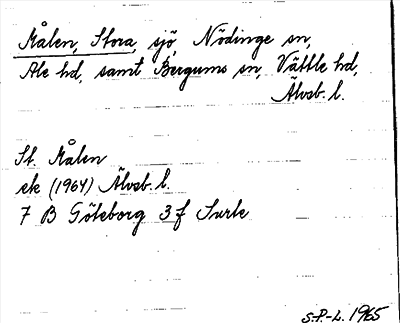 Målen, Stora, sjö, Nödinge sn,
Ale hd, samt Bergums sn, Vättle hd,
Älvsb. l.
St. Målen
ek (1964) Älvsb. l.
7 B Göteborg 3 f Surte
S-P.-L. 1965